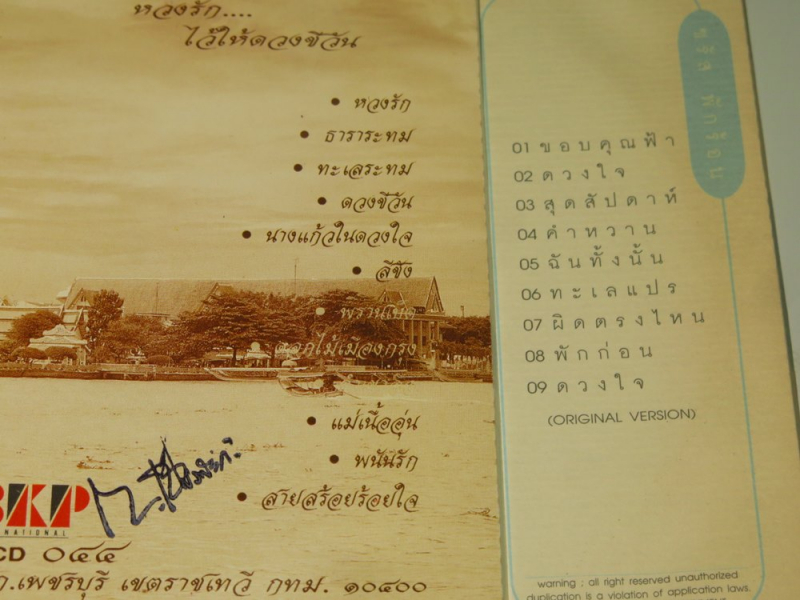 หวงรัก....
ไว้ให้ดวงชีวัน
• หวงรัก
• ธาราระทม
• ทะเลระทม
• ดวงชีวัน
• นางแก้วในดวงใจ
• ลีซัง
• พรานเบ็ด
ดอกไม้เมืองกรุง
• แม่เนื้ออุ่น
• พนันรัก
• สายสร้อยร้อยใจ
BKP
NATIONAL
CD ๐๔๔
ถ.เพชรบุรี เขตราชเทวี กทม. ๑๐๔๐๐
01 ขอบคุณฟ้า
02 ดวงใจ
03 สุดสัปดาห์
04 คำหวาน
05 ฉันทั้งนั้น
06 ทะเลแปร
07 ผิดตรงไหน
08 พักก่อน
09 ดวงใจ
(ORIGINAL VERSION)
warning ; all right reserved unauthorized
duplication is a violation of application laws.